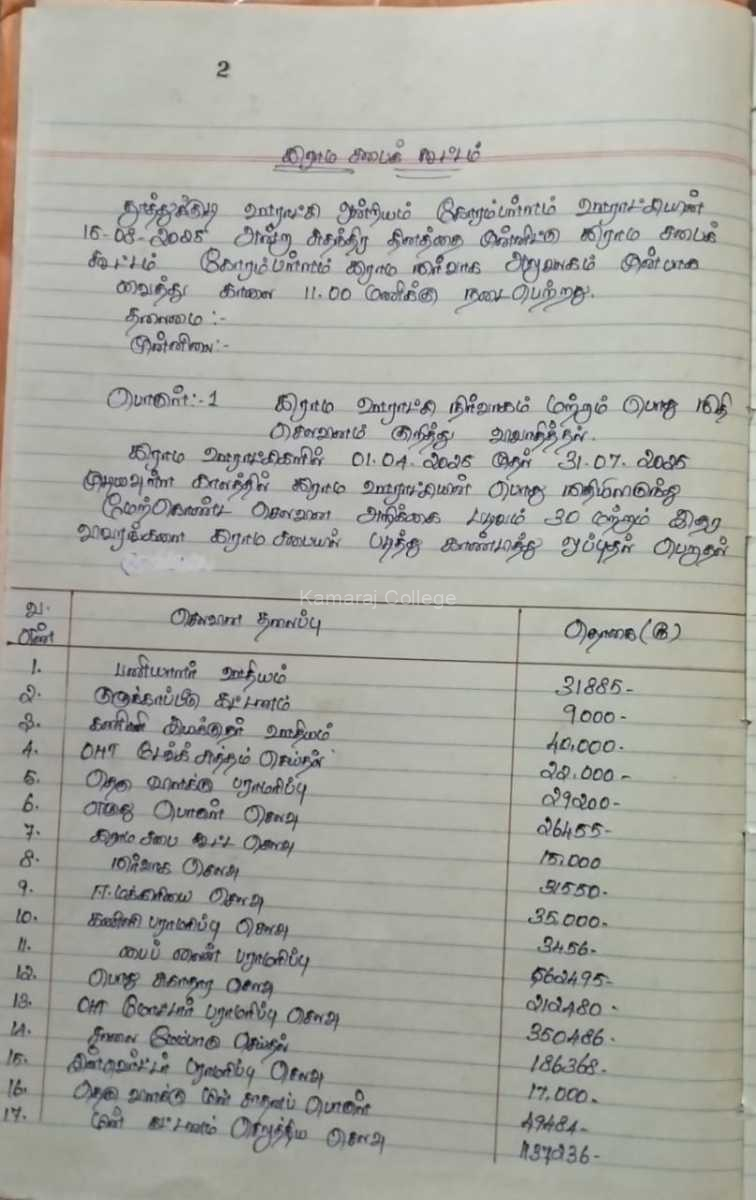 2
கிராம சபைக் கூட்டம்
தூத்துக்குடி ஊராட்சி ஒன்றியம் கோரம்பள்ளம் ஊராட்சியின்
15-08-2025 அன்று சுதந்திர தினத்தை முன்னிட்டு கிராம சபைக்
கூட்டம் கோரம்பள்ளம் கிராம நிர்வாக அலுவலகம் முன்பாக
வைத்து காலை 11.00 மணிக்கு நடைபெற்றது.
தலைமை :-
முன்னிலை:-
பொருள்:-1 கிராம ஊராட்சி நிர்வாகம் மற்றும் பொது நிதி
செலவினம் குறித்து விவாதித்தல்.
கிராம ஊராட்சிகளில் 01.04.2025 முதல் 31.07.2025
முடியவுள்ள காலத்தில் கிராம ஊராட்சியின் பொது நிதியிலிருந்து
மேற்கொண்ட செலவின அறிக்கை படிவம் 30 மற்றும் இதர
விவரங்களை கிராம சபையில் படித்து காண்பித்து ஒப்புதல் பெறுதல்
Kamaraj College
வ.எண் செலவின தலைப்பு தொகை(ரூ)
1. பணியாளர் ஊதியம் 31885-
2. குருக்காப்பீடு கட்டணம் 9.000-
3. கணினி இயக்குநர் ஊதியம் 40,000-
4. OHT டேங்க் சுத்தம் செய்தல் 22.000-
5. தெரு விளக்கு பராமரிப்பு 29200-
6. எழுது பொருள் செலவு 26455-
7. கிராம சபை கூட்ட செலவு 15.000
8. நிர்வாக செலவு 31550-
9. செலவு 35.000-
10. கணினி பராமரிப்பு செலவு 3456-
11. பைப் லைன் பராமரிப்பு 562495-
12. பொது சுகாதார செலவு 212480-
13. OHT மோட்டார் பராமரிப்பு செலவு 350486-
14. சாலை மேம்பாடு செய்தல் 186368-
15. பராமரிப்பு செலவு 17.000-
16. தெரு விளக்கு மின் சாதனப் பொருள் 49484-
17. மின் கட்டணம் செலுத்திய செலவு 737236-